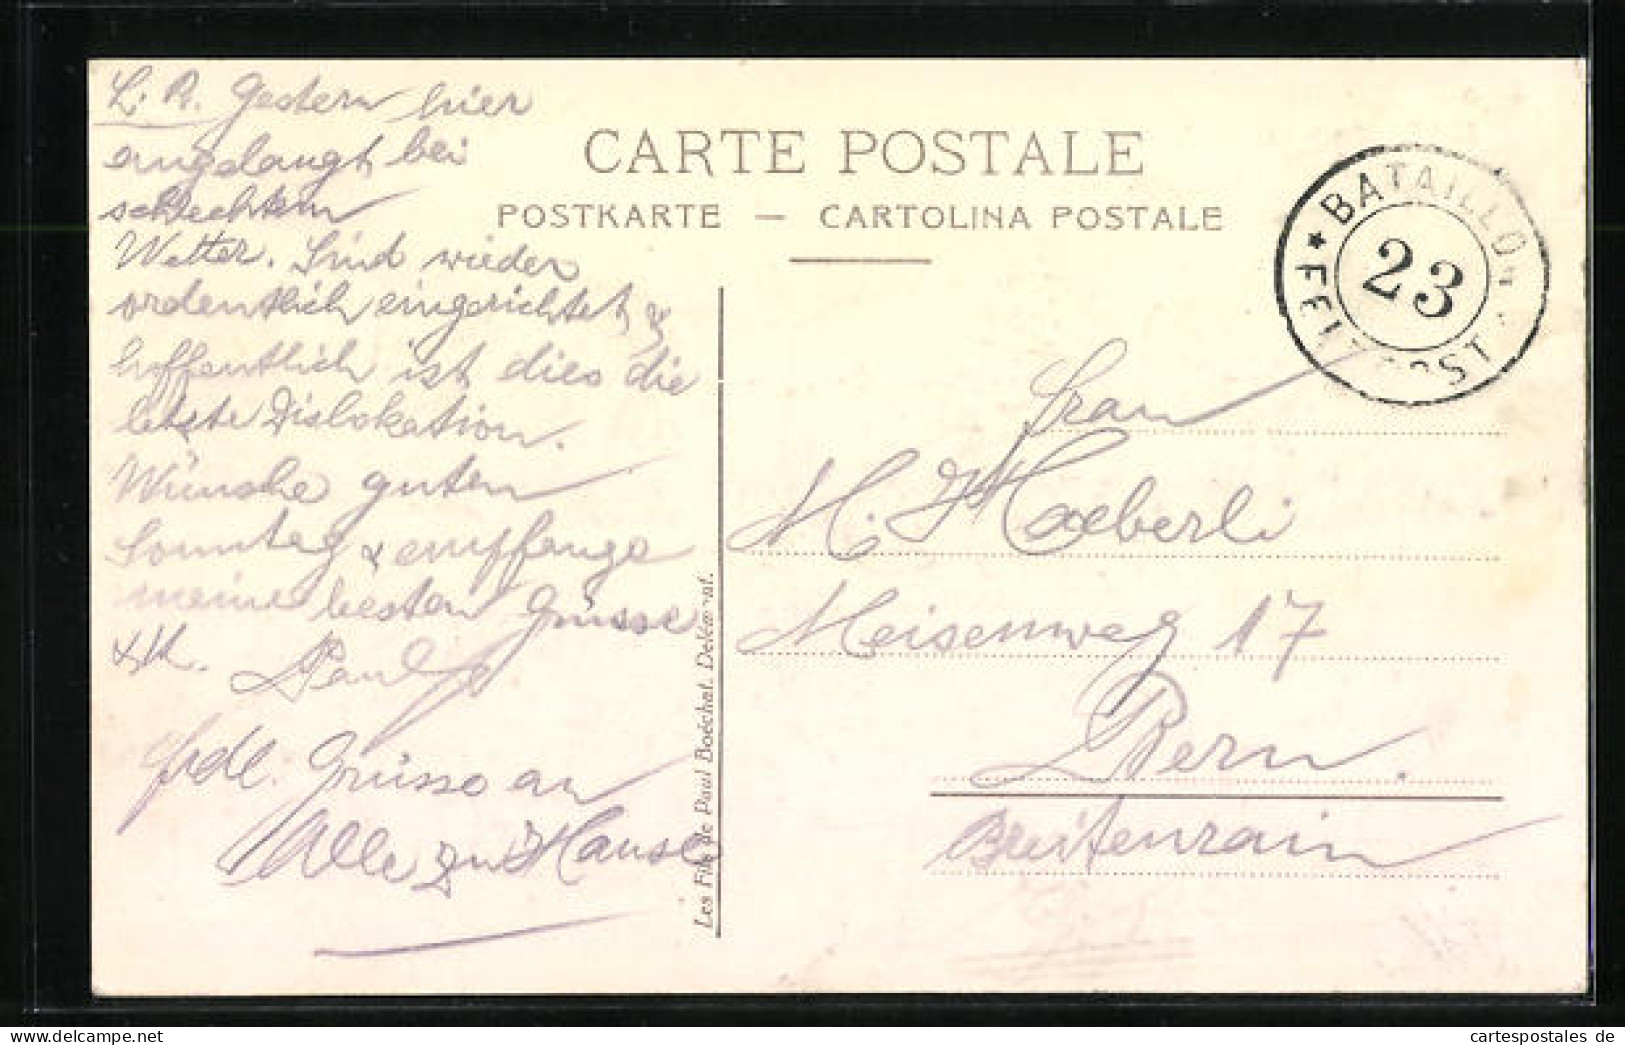 L. R. Gestern hier
angelangt bei
schlechtem
Wetter. Sind wieder
ordentlich eingerichtet &
hoffentlich ist dies die
letzte Dislokation.
Wünsche guten
Sonntag & empfange
meine besten Grüsse
& K. Paul
frdl. Grüsse an
Alle zu Hause
CARTE POSTALE
POSTKARTE — CARTOLINA POSTALE
BATAILLON
23
★ FELDPOST
Les Fils de Paul Boëchat. Delémont.
Frau
M. Haeberli
Meisenweg 17
Bern.
Breitenrain
cartespostales de